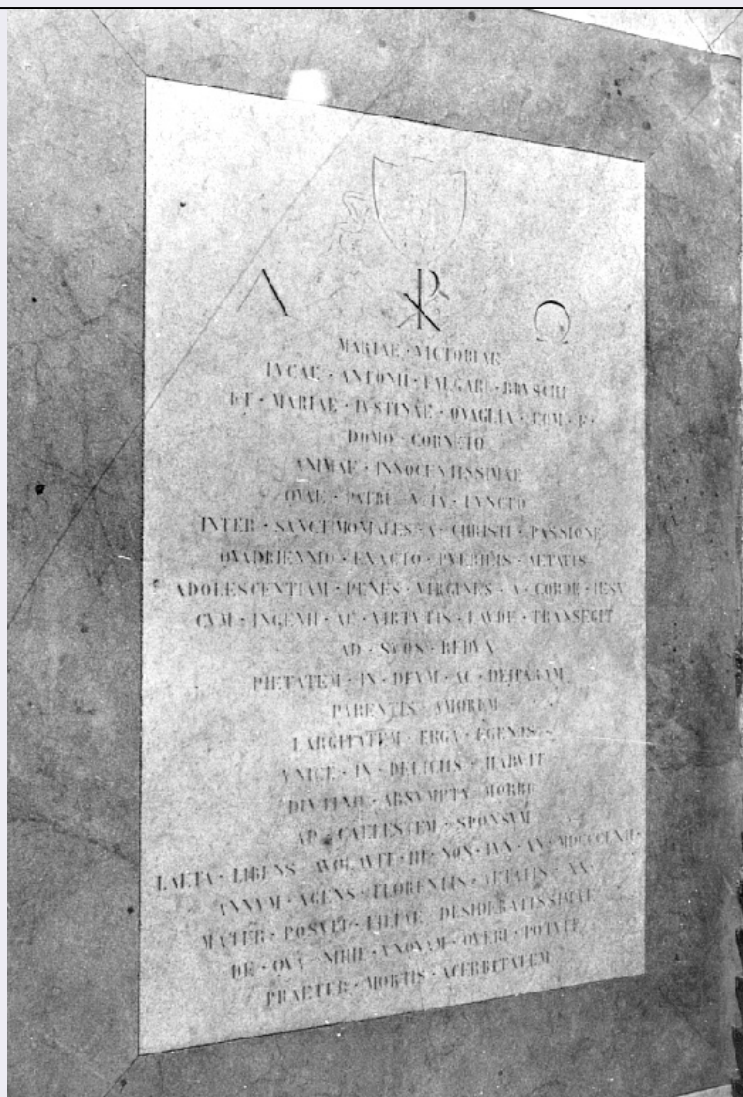 Α ☧ Ω
MARIAE · VICTORIAE
LVCAE · ANTONII · FALGARI · BRVSCHI
ET · MARIAE · IVSTINAE · QVAGLIA · DOM · F ·
DOMO · CORNETO
ANIMAE · INNOCENTISSIMAE
QVAE · PATRE · VIX · FVNCTO
INTER · SANCTIMONIALES · A · CHRISTI · PASSIONE
QVADRIENNIO · EXACTO · PVERILIS · AETATIS
ADOLESCENTIAM · PENES · VIRGINES · A · CORDE · IESV
CVM · INGENII · AC · VIRTVTIS · LAVDE · TRANSEGIT
AD · SVOS · REDVX
PIETATEM · IN · DEVM · AC · DEIPARAM
PARENTIS · AMOREM
LARGITATEM · ERGA · EGENOS
VNICE · IN · DELICIIS · HABVIT
DIVTINO · ABSVMPTA · MORBO
AD · CAELESTEM · SPONSVM
LAETA · LIBENS · AVOLAVIT · III · NON · IVN · AN ·
ANNVM · AGENS · FLORENTIS · AETATIS · XX ·
MATER · POSVIT · FILIAE · DESIDERATISSIMAE
DE · QVA · NIHIL · VNQVAM · QVERI · POTVIT
PRAETER · MORTIS · ACERBITATEM